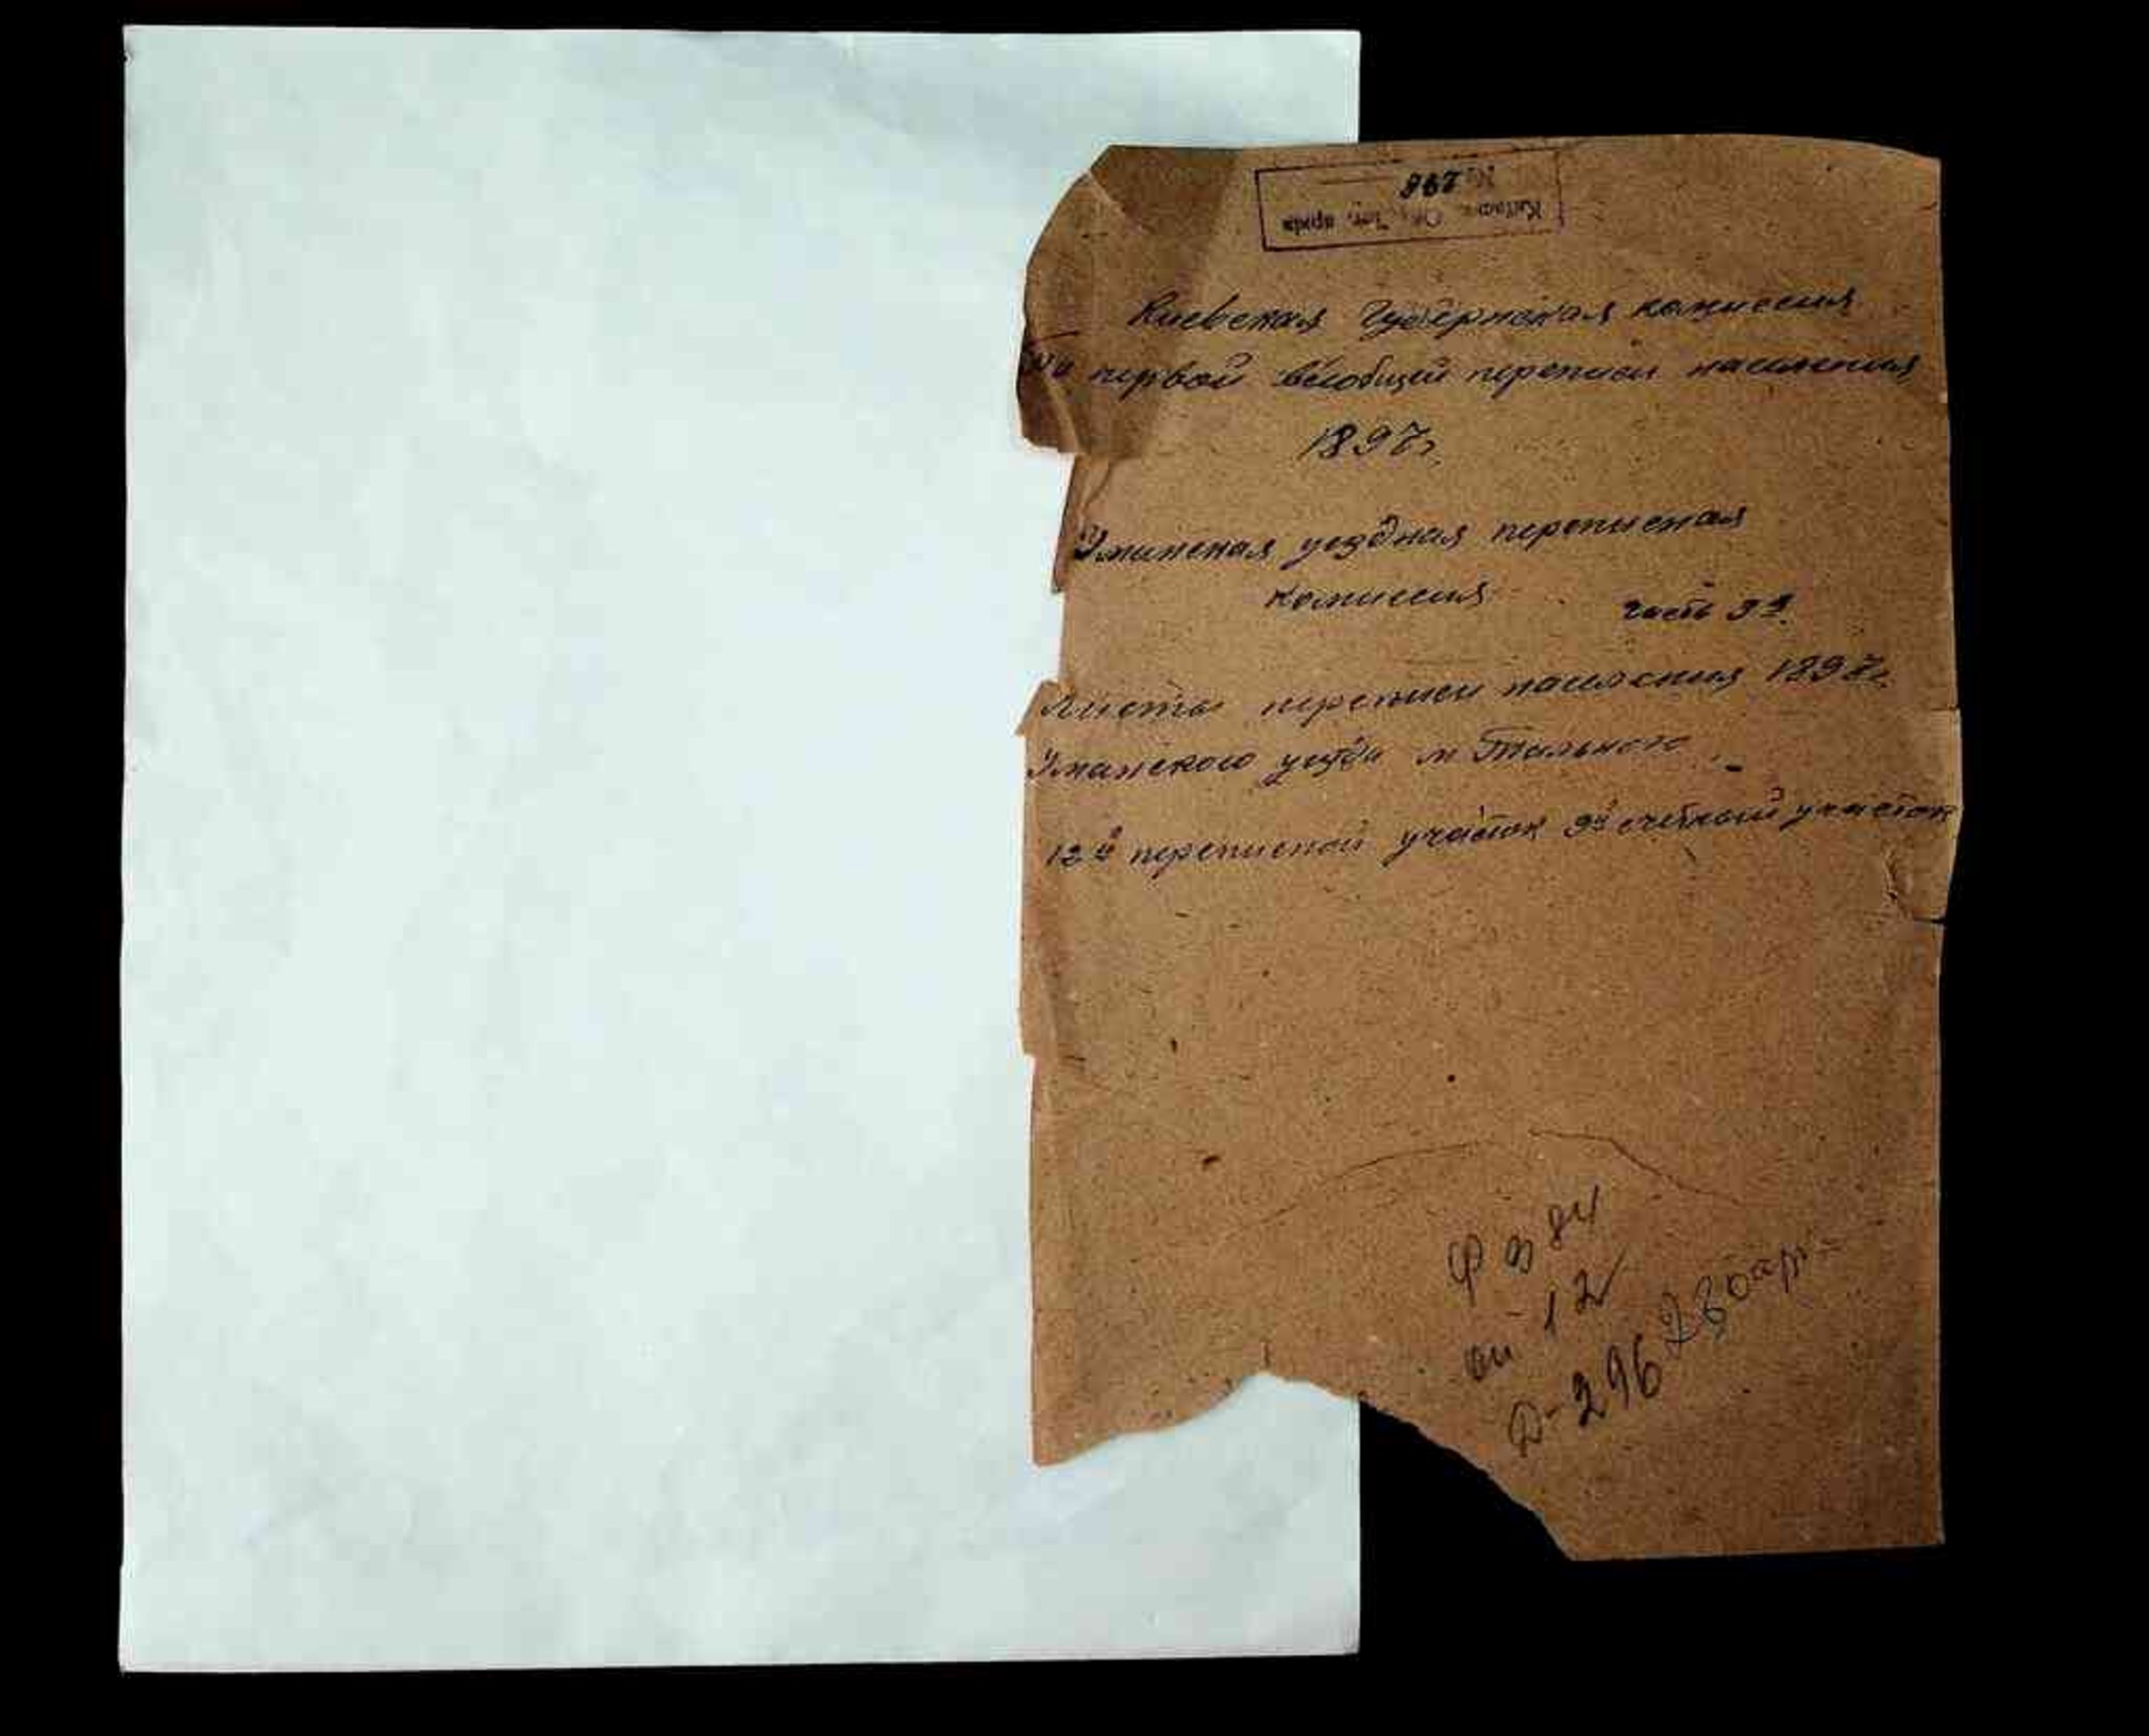 Київськ. Обл. Іст. архів
№
Киевская Губернская комиссия
первой всеобщей переписи населения
1897г.
Уманская уездная переписная
комиссия часть 3я
Листы переписи населения 1897г.
Уманского уезда м Тального
12й переписной участок 3й счетный участок
Ф 384
оп 12
Д-296